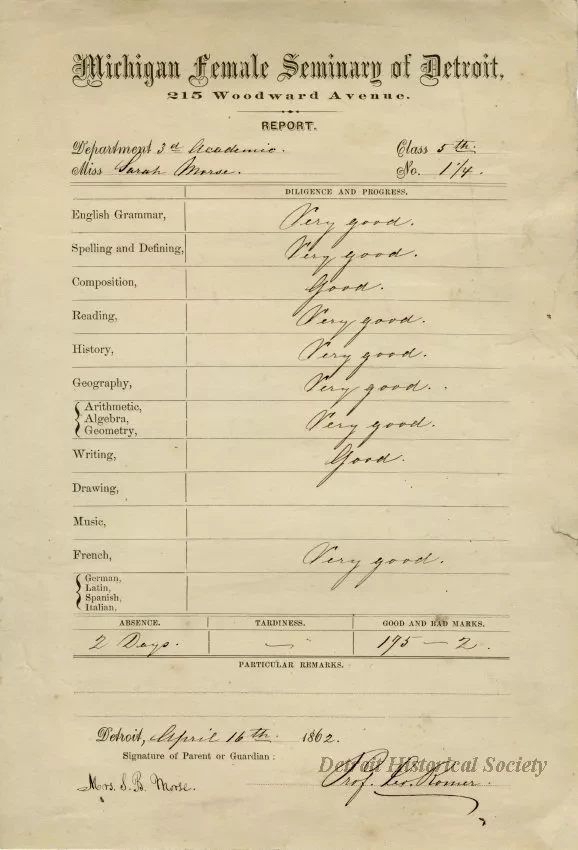 Michigan Female Seminary of Detroit,
215 Woodward Avenue.
REPORT.
Department 3d Academic. Class 5th.
Miss Sarah Morse. No. 114.
DILIGENCE AND PROGRESS.
English Grammar, Very good.
Spelling and Defining, Very good.
Composition, Good.
Reading, Very good.
History, Very good.
Geography, Very good.
Arithmetic,
Algebra, Very good.
Geometry,
Writing, Good.
Drawing,
Music,
French, Very good.
German,
Latin,
Spanish,
Italian.
ABSENCE. TARDINESS. GOOD AND BAD MARKS.
2 Days. — 195 — 2.
PARTICULAR REMARKS.
Detroit, April 16th. 1862.
Signature of Parent or Guardian:
Detroit Historical Society
Mrs. S. B. Morse. Prof. Romer.